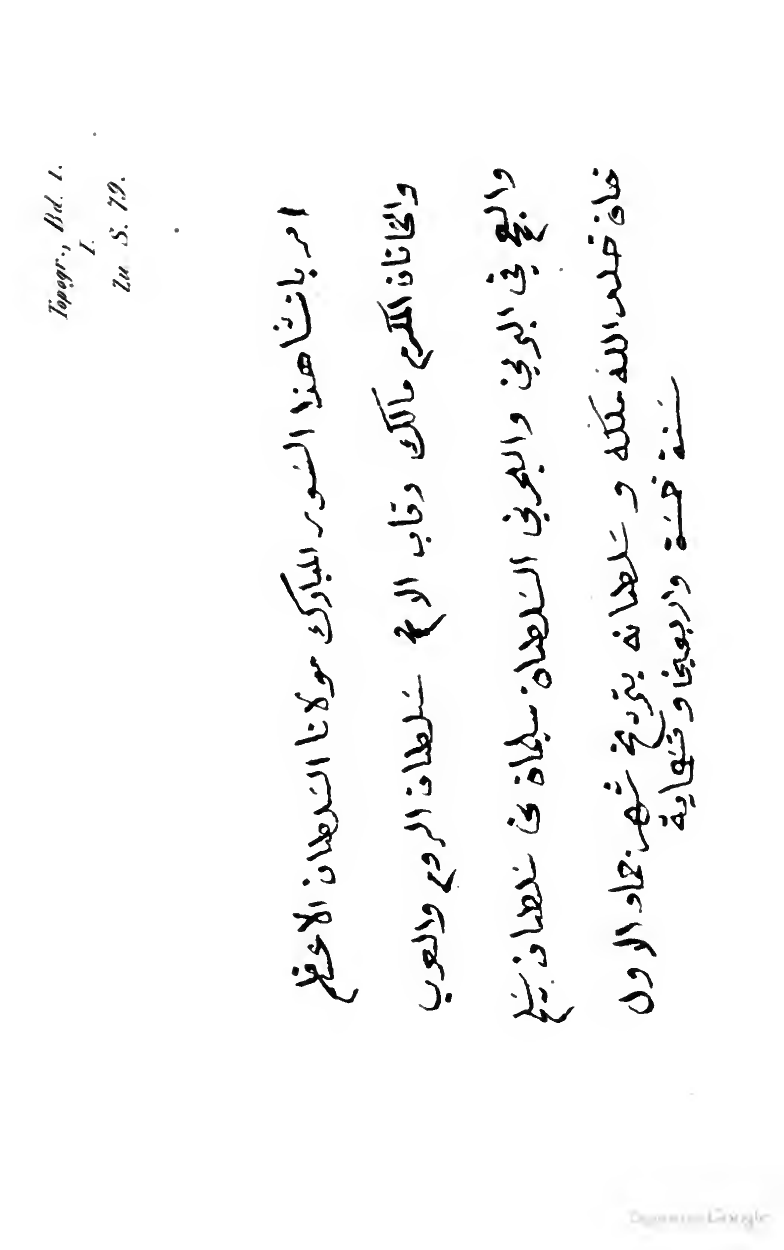 Topogr., Bd. I.
I.
Zu S. 79.
امر بانشا هذا السور المبارك مولانا السلطان الاعظم
والخاقان المكرم مالك رقاب الامم سلطان الروم والعرب
والعجم في البرين والبحرين السلطان سليمان بن سلطان سليم
خان خلد الله ملكه و سلطانه بتريخ شهر جماد الاول
سنة خمسة واربعين و تسعماية
Digitized by Google